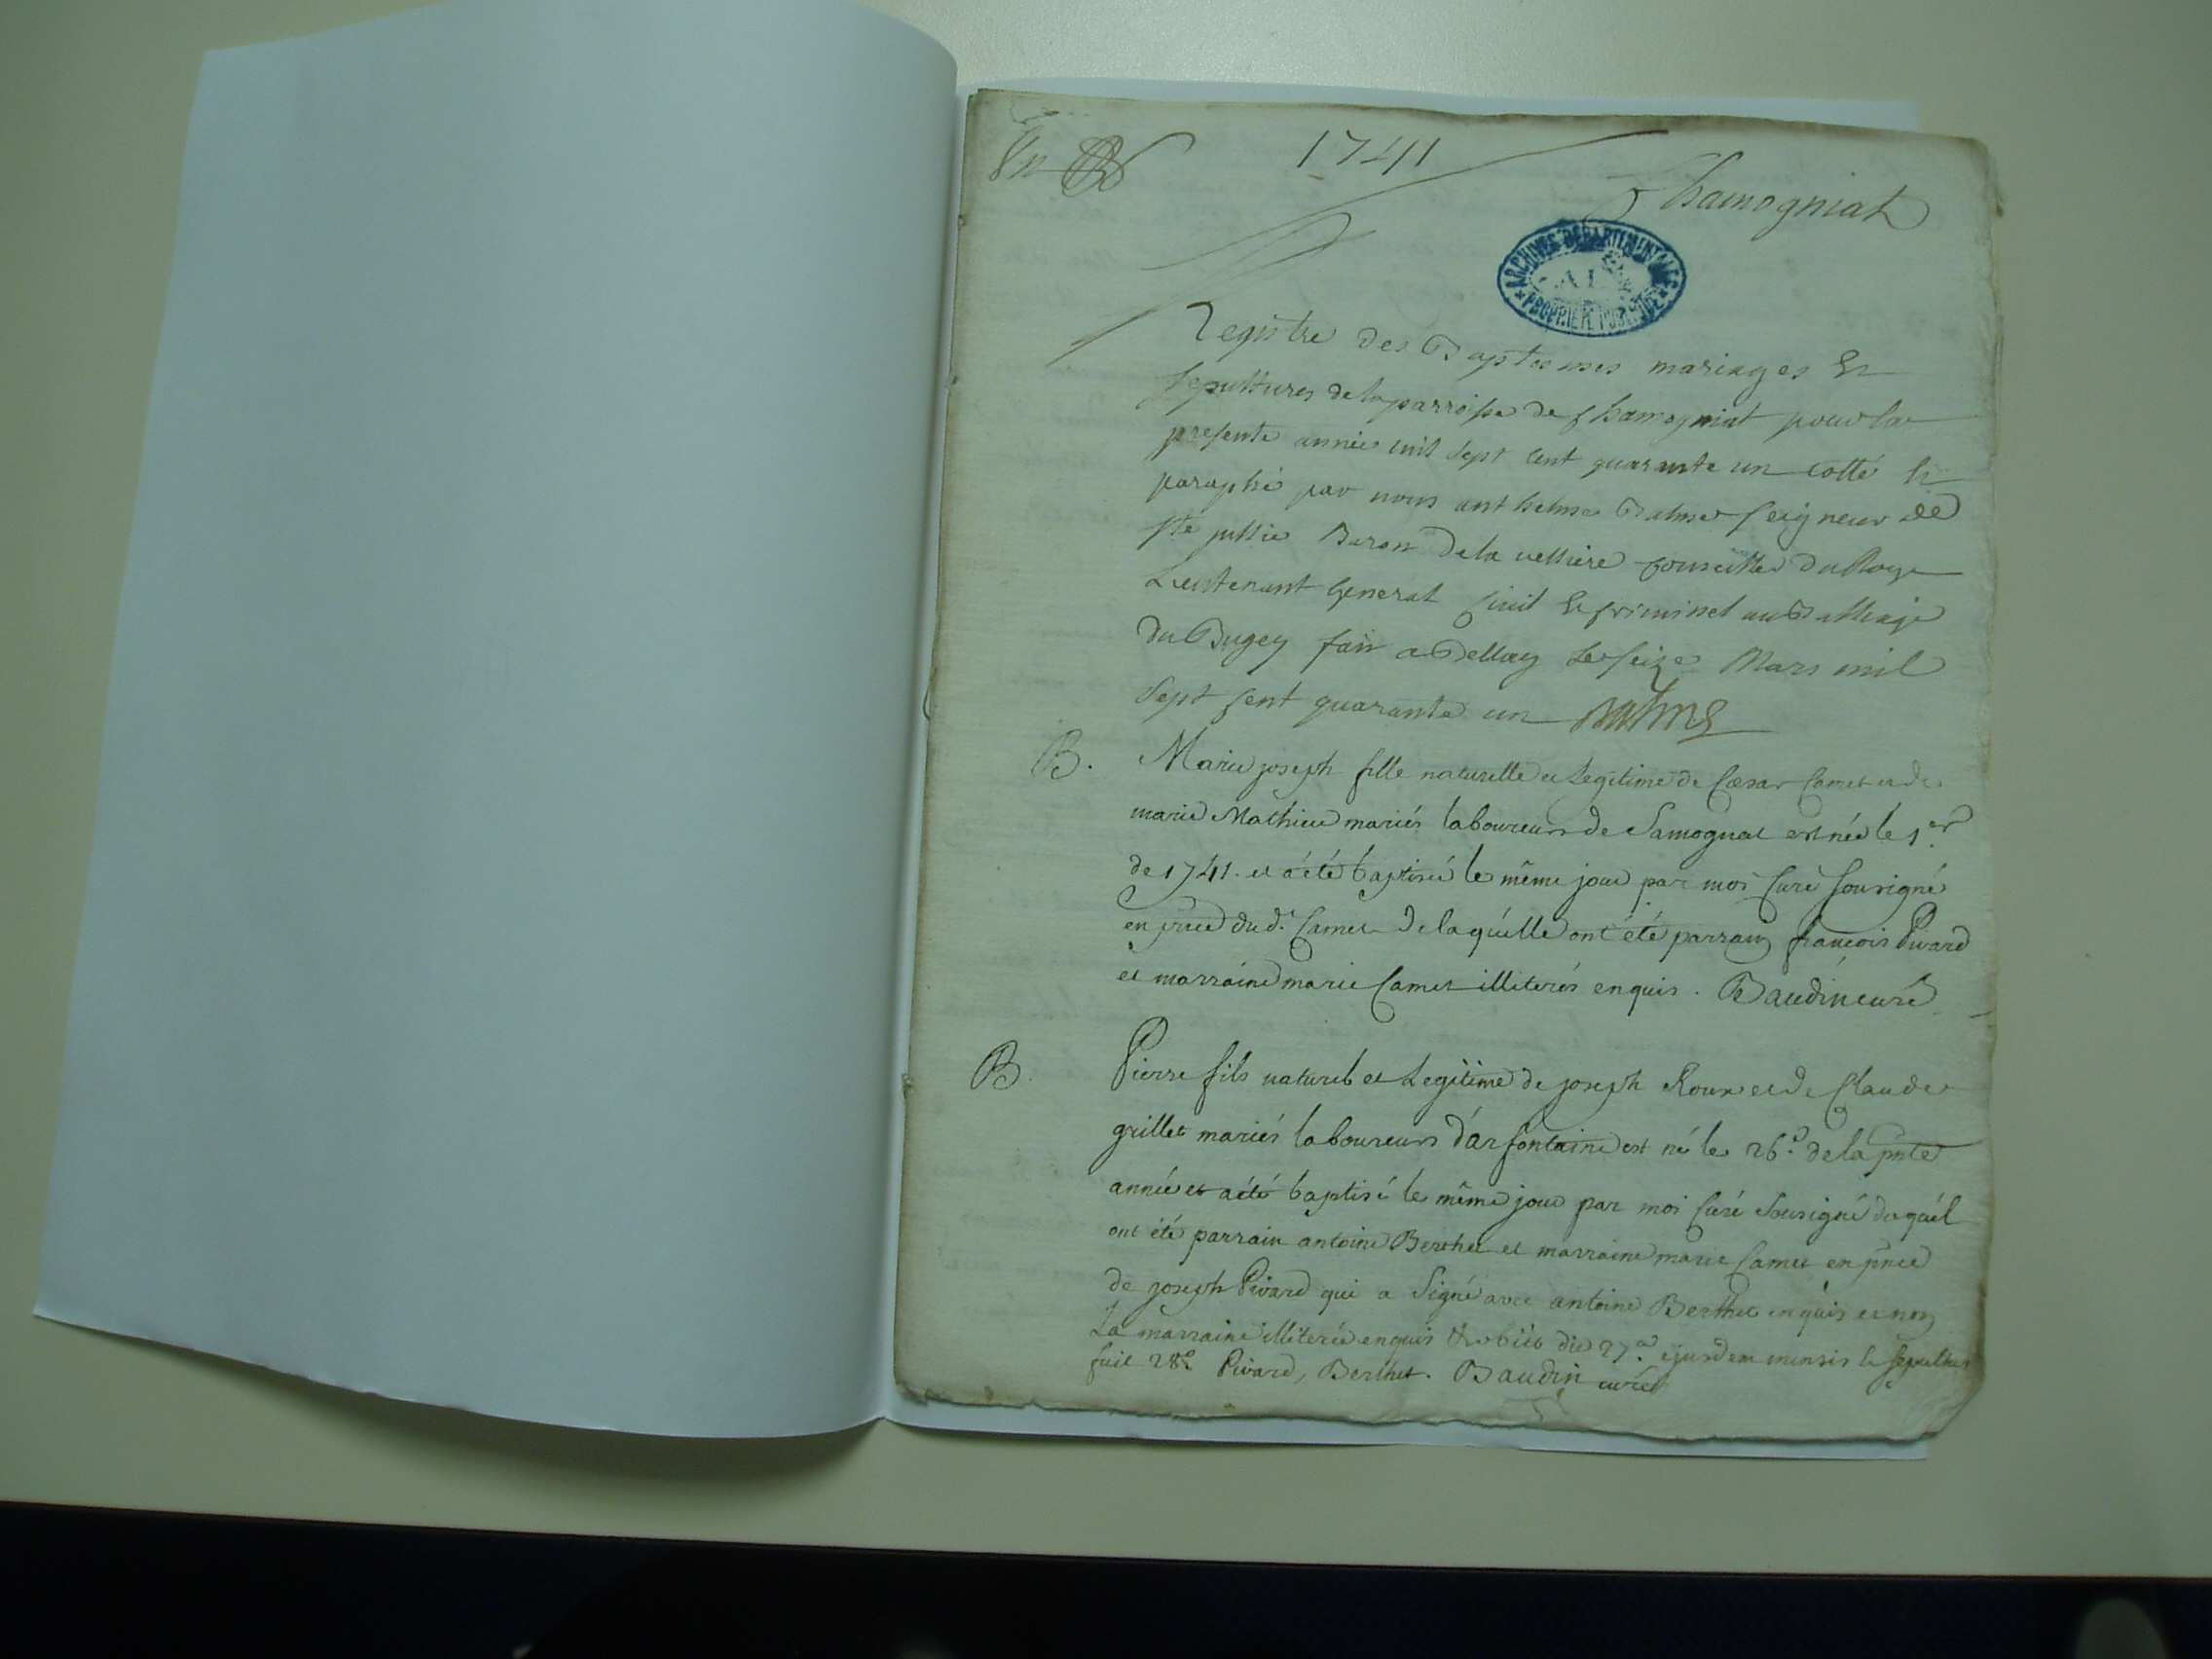 Un
1741
Chamogniat
ARCHIVES DEPARTEMENTALES
AIN
PROPRIETE PUBLIQUE
Registre des Baptesmes mariages Et
sepultures de la parroisse de Chamogniat pour la
presente année mil sept cent quarante un cotté Et
paraphé par nous anthelme Balme seigneur de
Ste jullie Baron de la velliere conseiller du Roy
Lieutenant general civil Et criminel au Balliage
du Bugey fait a Bellay le seize Mars mil
sept cent quarante un Balme
B. Marie joseph fille naturelle et Legitime de Cæsar Camet et de
marie Mathieu mariés laboureurs de Samognat est née le 1.er
de 1741. et a été baptisée le même jour par moi Curé sousigné
en pnce du d. Camet de laquélle ont été parrain françois Pivard
et marraine marie Camet illiterés enquis. Baudin curé
B. Pierre fils naturel et Legitime de joseph Roux et de Claude
grillet mariés laboureurs d'arfontaine est né le 26.e de la pnte
année et a été baptisé le même jour par moi Curé Sousigné duquél
ont été parrain antoine Berthet et marraine marie Camet en pnce
de joseph Pivard qui a Signé avec antoine Berthet enquis et non
La marraine illiterée enquis obiit die 27.a ejusdem mensis & sepultus
fuit 28.a Pivard, Berthet. Baudin curé